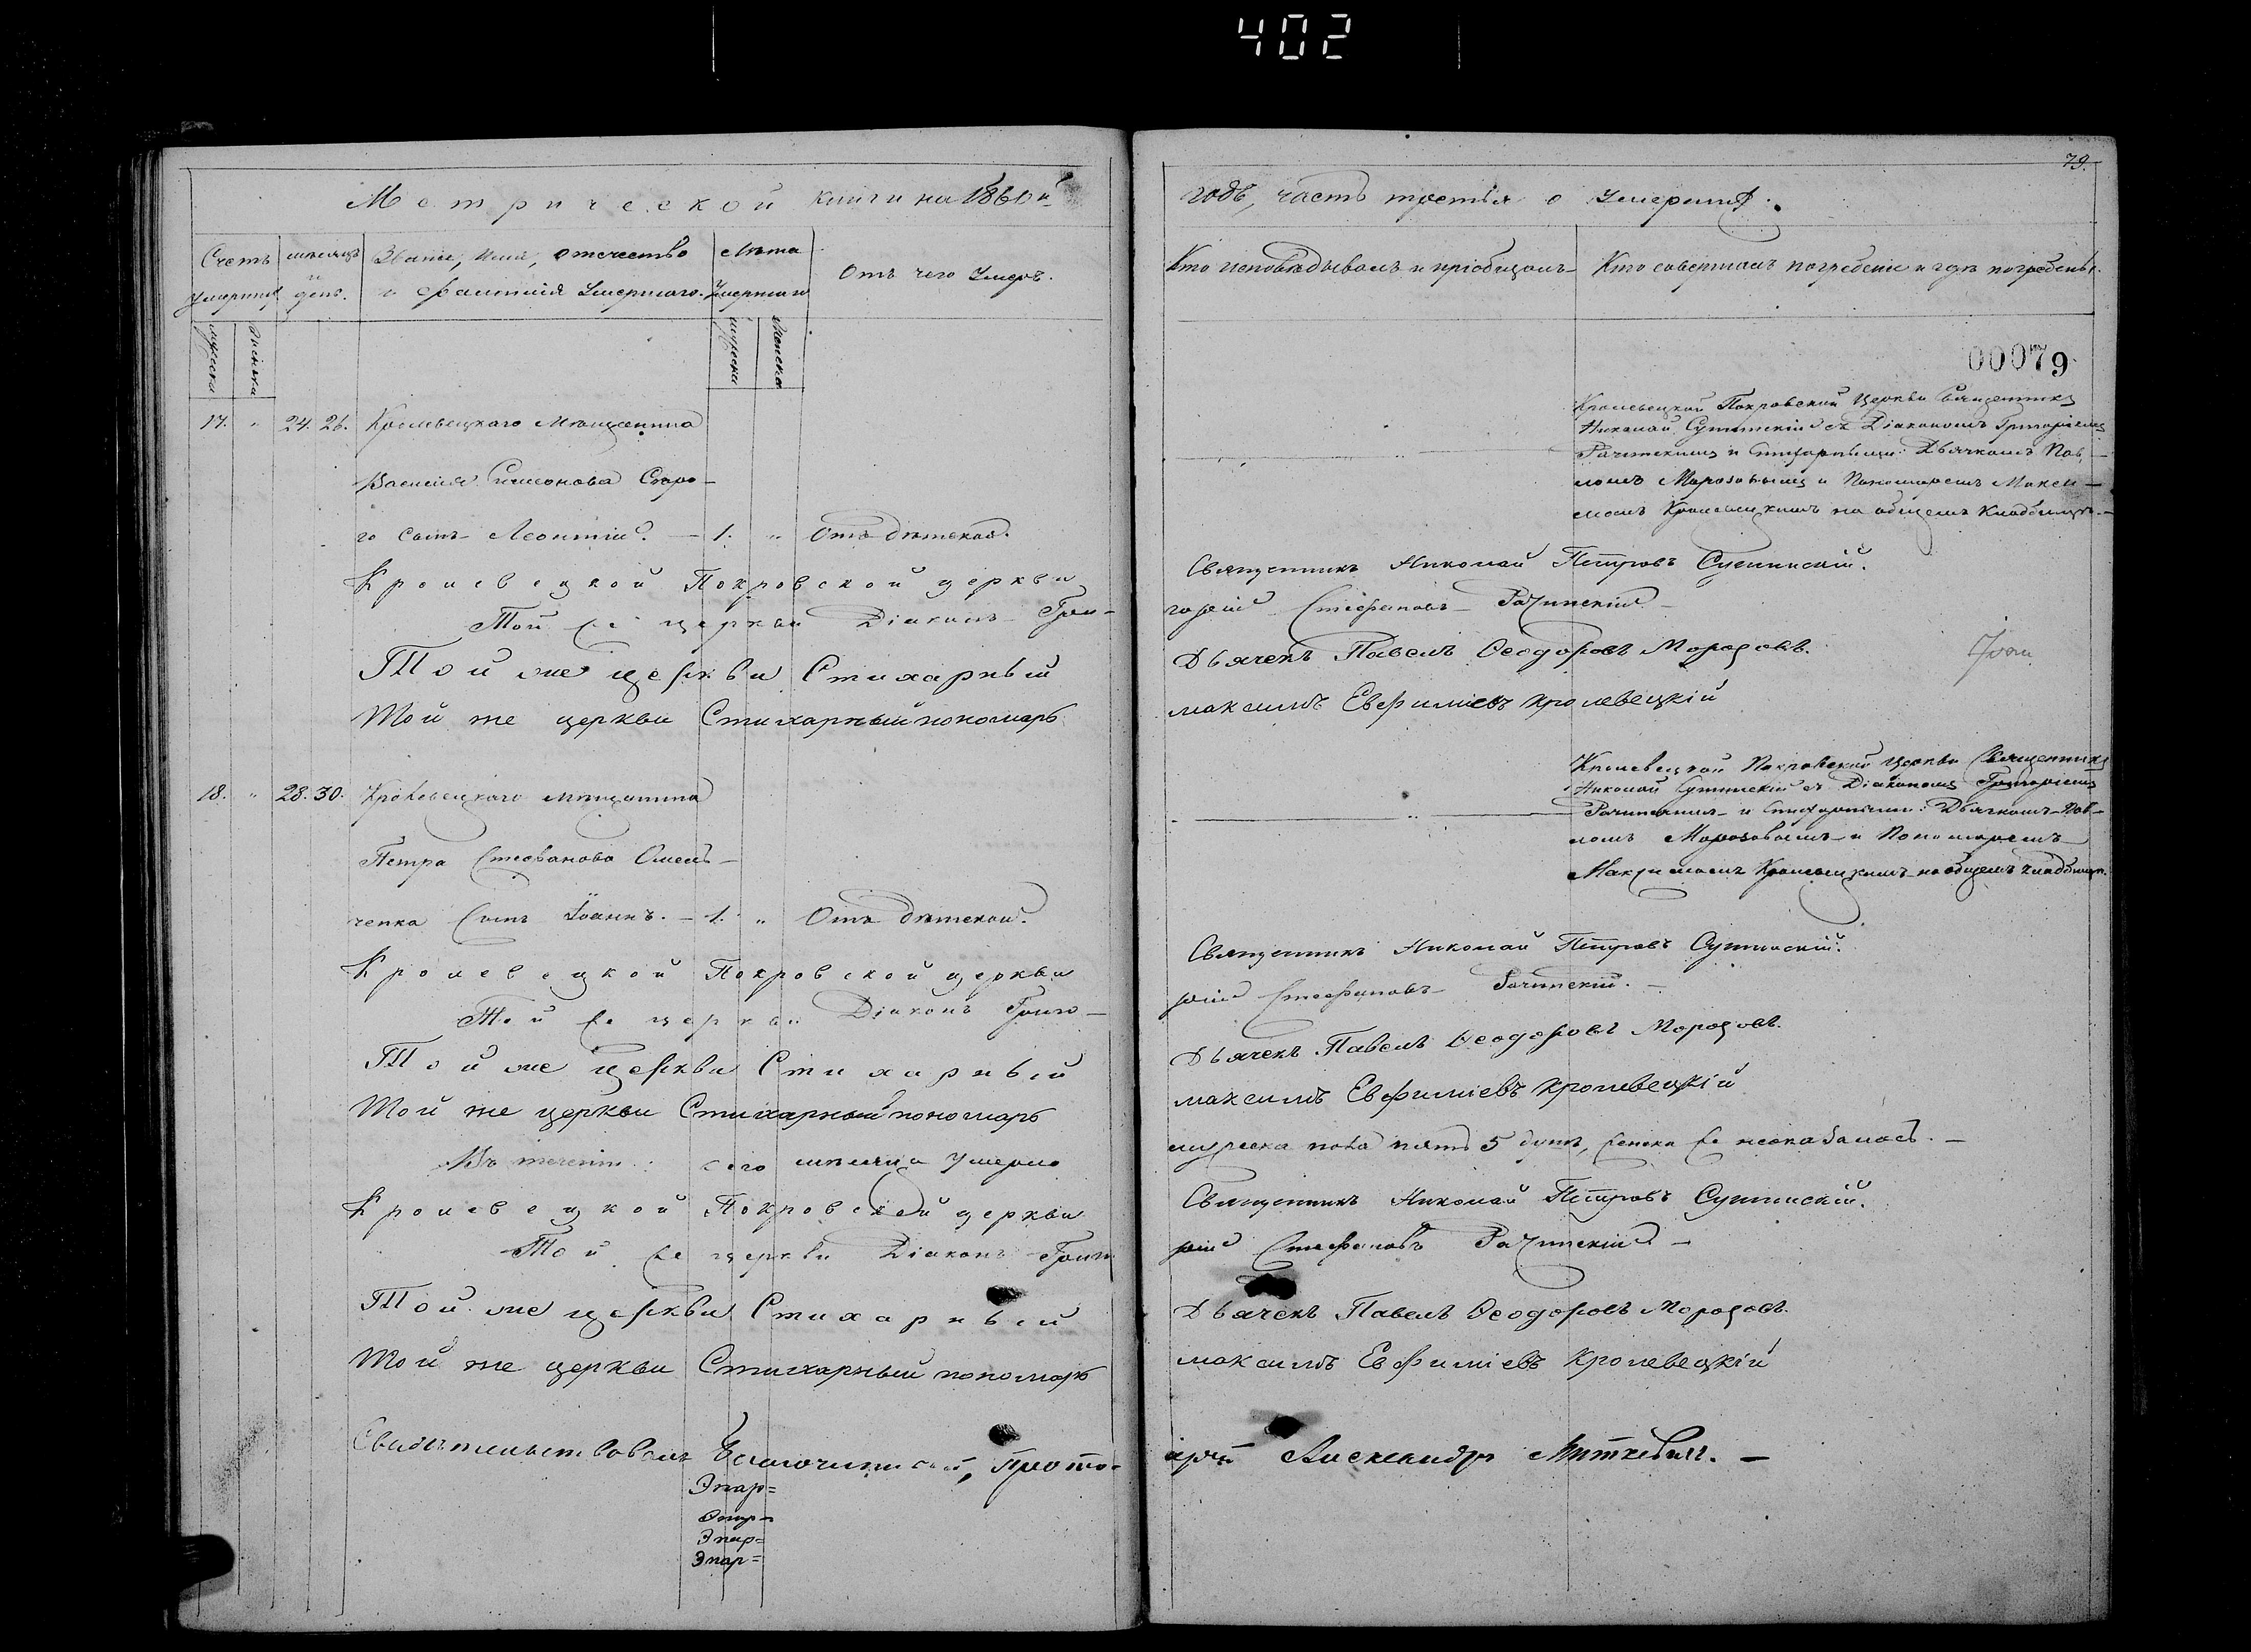 402
79.
Метрической книги на 1860й
годъ, часть третья о Умершихъ.
Счетъ Умершихъ
мѣсяцъ и день.
Званіе, Имя, отчество и фамилія Умершаго.
Лѣта Умершаго
Отъ чего Умеръ.
Кто исповѣдывалъ и пріобщалъ
Кто совершалъ погребеніе и гдѣ погребены.
мужеска
женска
мужеска
женска
00079
17. " 24. 26. Кролевецкаго Мѣщанина
Василія Симонова Старо-
го сынъ Леонтій. — 1. " Отъ дѣтской.
Кролевецкой Покровской Церкви Священникъ
Николай Сушинскій съ Діакономъ Григоріемъ
Рачинскимъ и Стихарными: Дьячкомъ Пав-
ломъ Морозовымъ и Пономаремъ Макси-
момъ Кролевецкимъ на общемъ Кладбищѣ.
Кролевецкой Покровской церкви Священникъ Николай Петровъ Сушинскій.
Той же церкви Діаконъ Гри- горій Стефановъ Рачинскій
Той же церкви Стихарный Дьячекъ Павелъ Ѳеодоровъ Морозовъ.
Той же церкви Стихарный пономарь максимъ Евфиміевъ кролевецкій
18. " 28. 30. Кролевецкаго мѣщанина
Петра Стефанова Омель-
ченка Сынъ Іоаннъ. — 1. " Отъ дѣтской.
Кролевецкой Покровской Церкви Священникъ
Николай Сушинскій съ Діакономъ Григоріемъ
Рачинскимъ и Стихарными: Дьячкомъ Пав-
ломъ Морозовымъ и Пономаремъ
Максимомъ Кролевецкимъ на общемъ кладбищѣ.
Кролевецкой Покровской церкви Священникъ Николай Петровъ Сушинскій.
Той же церкви Діаконъ Григо- рій Стефановъ Рачинскій.
Той же церкви Стихарный Дьячекъ Павелъ Ѳеодоровъ Морозовъ.
Той же церкви Стихарный пономарь максимъ Евфиміевъ кролевецкій
Въ теченіи сего мѣсяца Умерло мужеска пола пять 5 душъ, женска же неоказалось. —
Кролевецкой Покровской церкви Священникъ Николай Петровъ Сушинскій.
Той же церкви Діаконъ Григо рій Стефановъ Рачинскій —
Той же церкви Стихарный Дьячекъ Павелъ Ѳеодоровъ Морозовъ.
Той же церкви Стихарный пономарь максимъ Евфиміевъ Кролевецкій
Свидѣтельствовалъ Благочинный, Прото- іерей Александръ Миткевичъ. —
Эпар=
Эпар=
Эпар=
Эпар=